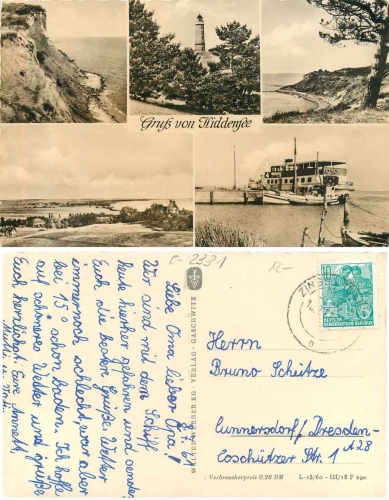 Gruß von Hiddensee
C-233-1
12,-
Liebe Oma lieber Opa!
Wir sind mit dem Schiff
heute hierher gefahren und senden
Euch die besten Grüße. Wetter
immernoch schlecht, war aber
bei 15° schon baden. Ich hoffe
auf schöneres Wetter und grüße
Euch herzlichst. Eure Annett,
Mutti u. Vati.
VERLAG · GASCHWITZ
ZIN
10
DEUTSCHE
DEMOKRATISCHE REPUBLIK
Herrn
Bruno Schütze
Cunnersdorf/Dresden-
Coschützer Str. 1
A28
Verbraucherpreis 0,20 DM